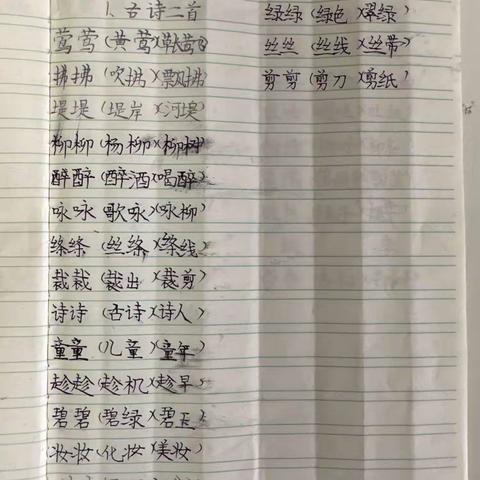 1、古诗二首
莺莺(黄莺)(草长莺飞)
拂拂(吹拂)(飘拂)
堤堤(堤岸)(河堤)
柳柳(杨柳)(柳树)
醉醉(醉酒)(喝醉)
咏咏(歌咏)(咏柳)
绦绦(丝绦)(绦线)
裁裁(裁出)(裁剪)
诗诗(古诗)(诗人)
童童(儿童)(童年)
趁趁(趁机)(趁早)
碧碧(碧绿)(碧玉)
妆妆(化妆)(美妆)
绿绿(绿色)(翠绿)
丝丝(丝线)(丝带)
剪剪(剪刀)(剪纸)